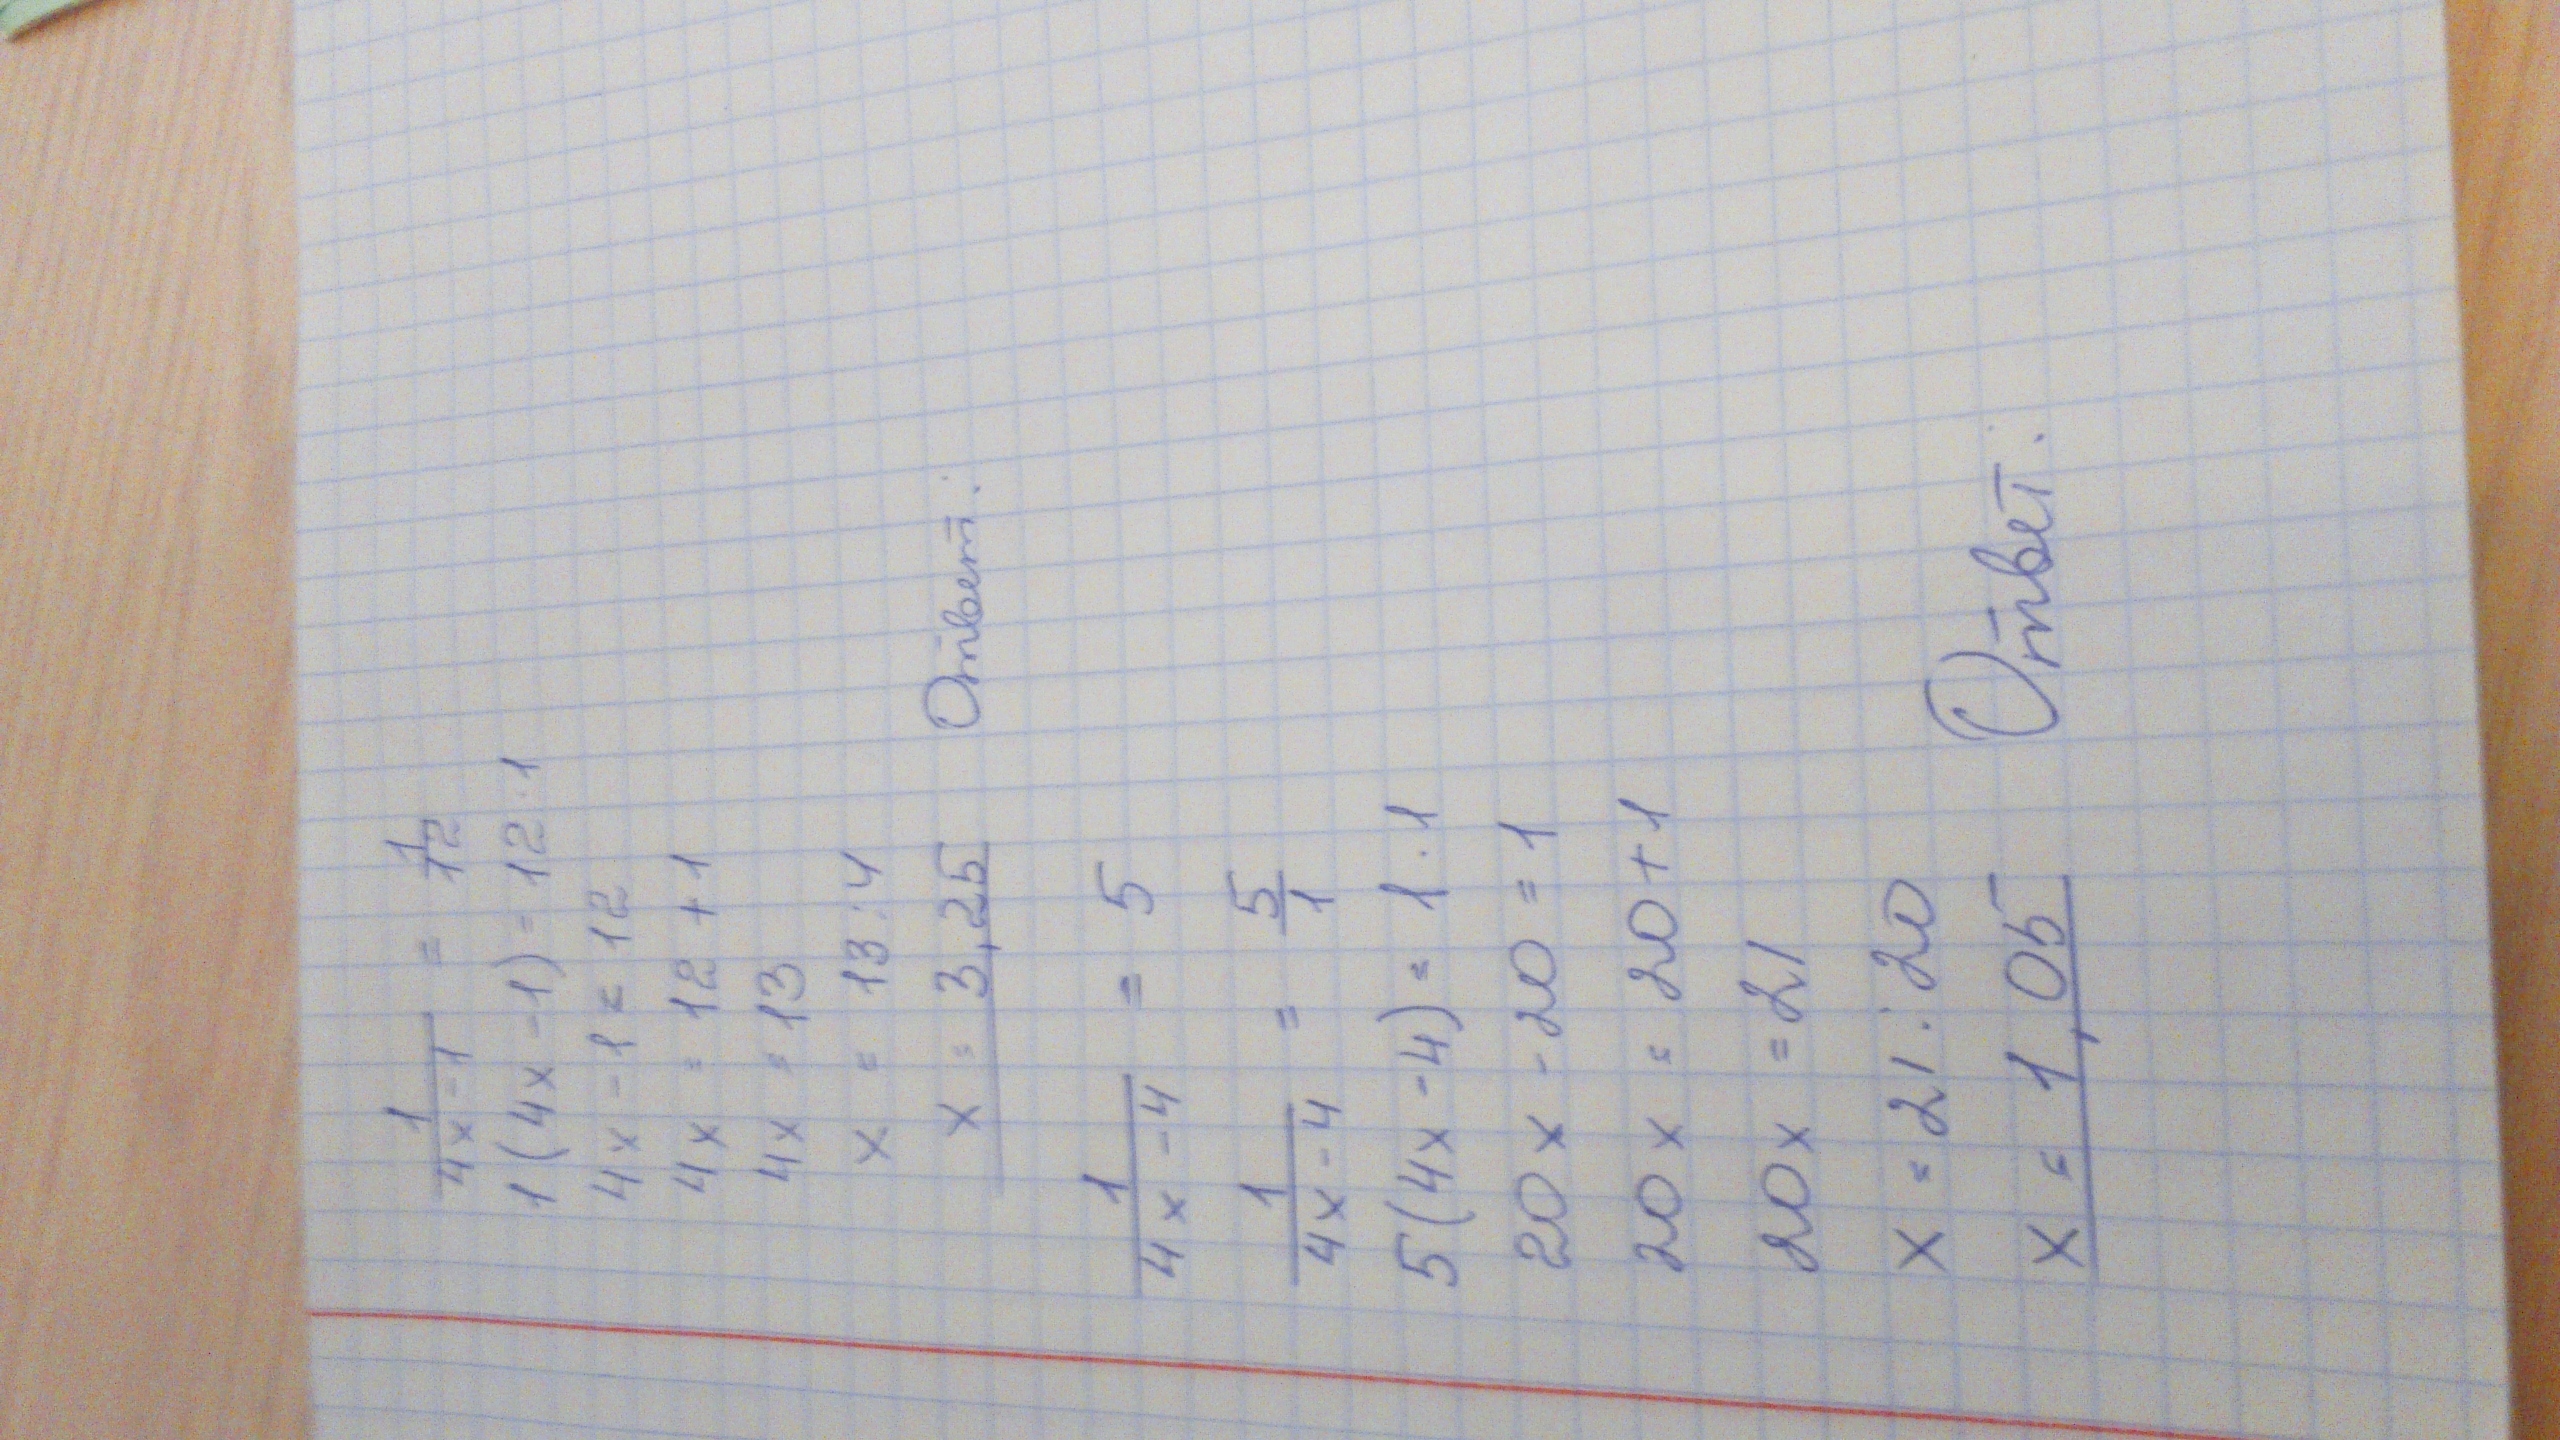 1/(4x-1) = 1/12
1(4x-1) = 12·1
4x-1=12
4x = 12+1
4x = 13
x = 13:4
x = 3,25 Ответ:
1/(4x-4) = 5
1/(4x-4) = 5/1
5(4x-4) = 1·1
20x-20=1
20x = 20+1
20x = 21
x = 21:20
x = 1,05 Ответ: